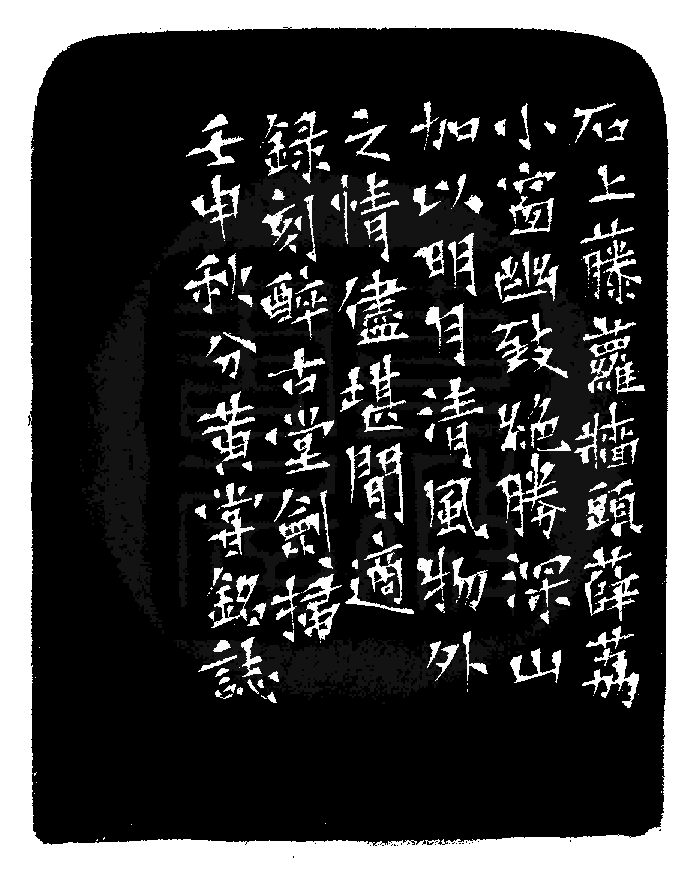 石上藤蘿牆頭薜荔
小窗幽致絶勝深山
加以明月清風物外
之情儘堪閒適
錄刻醉古堂劍掃
壬申秋分黄掌銘誌